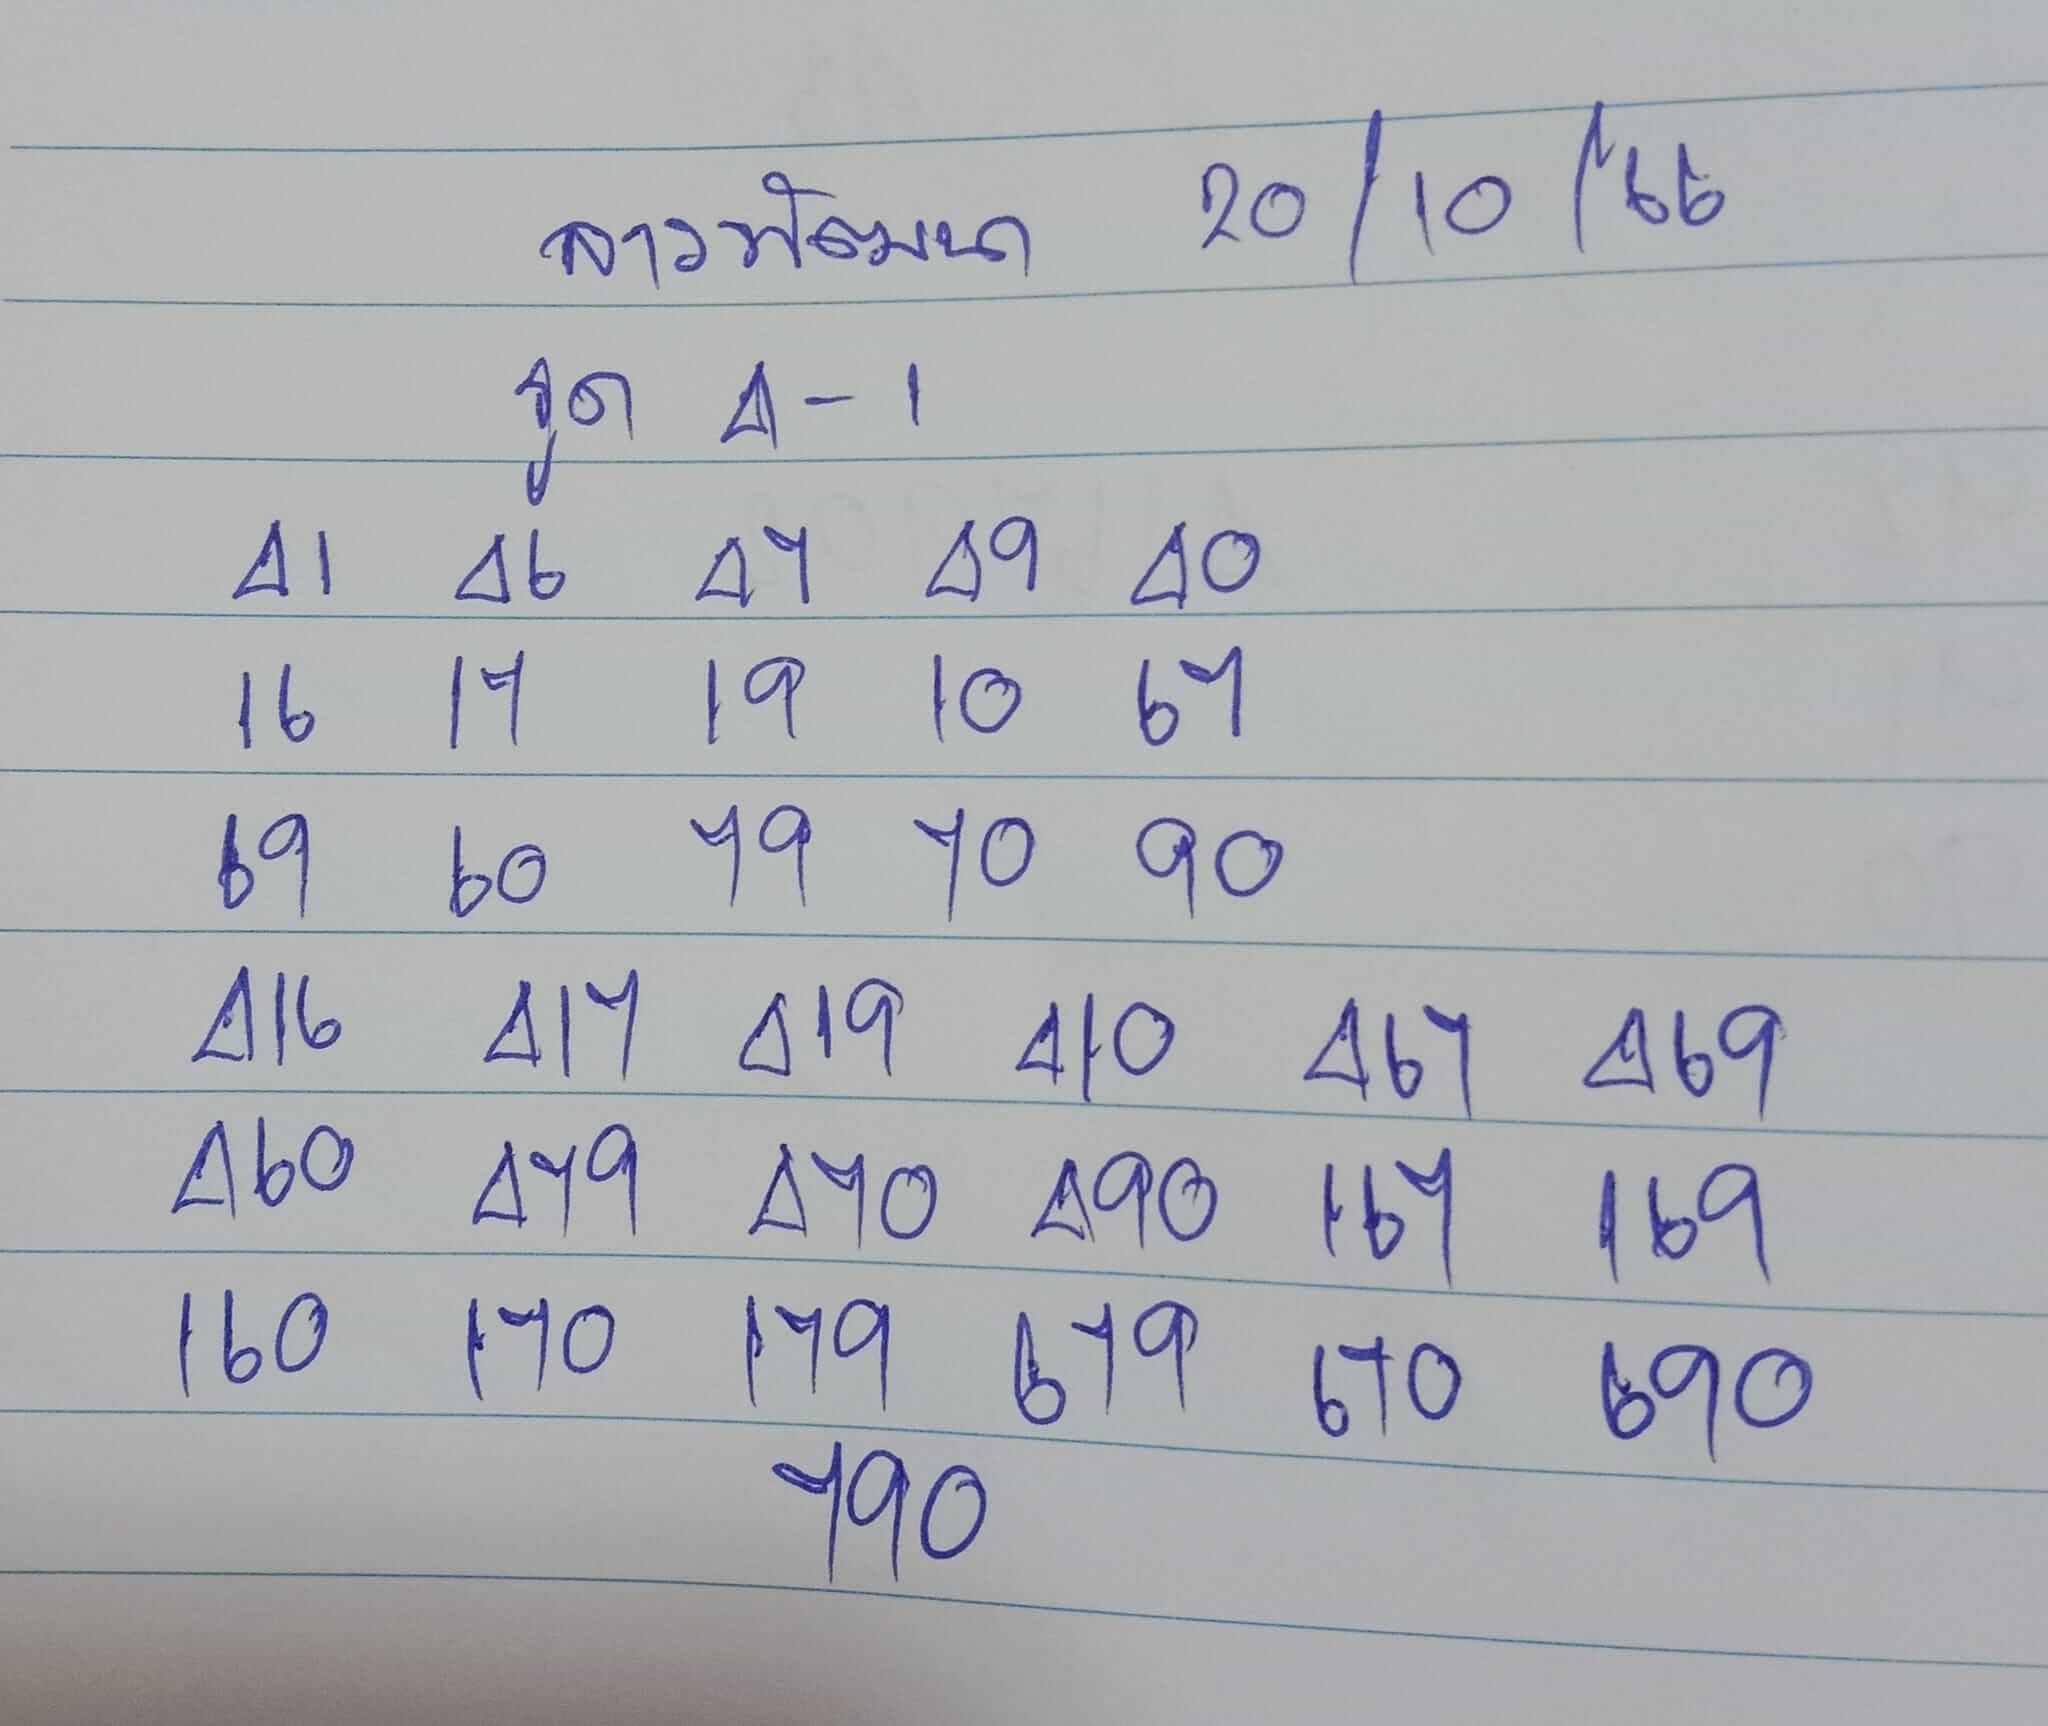 ลาวพัฒนา 20/10/66
รูด 4-1
41 46 47 49 40
16 17 19 10 67
69 60 79 70 90
416 417 419 410 467 469
460 479 470 490 167 169
160 170 179 679 670 690
790